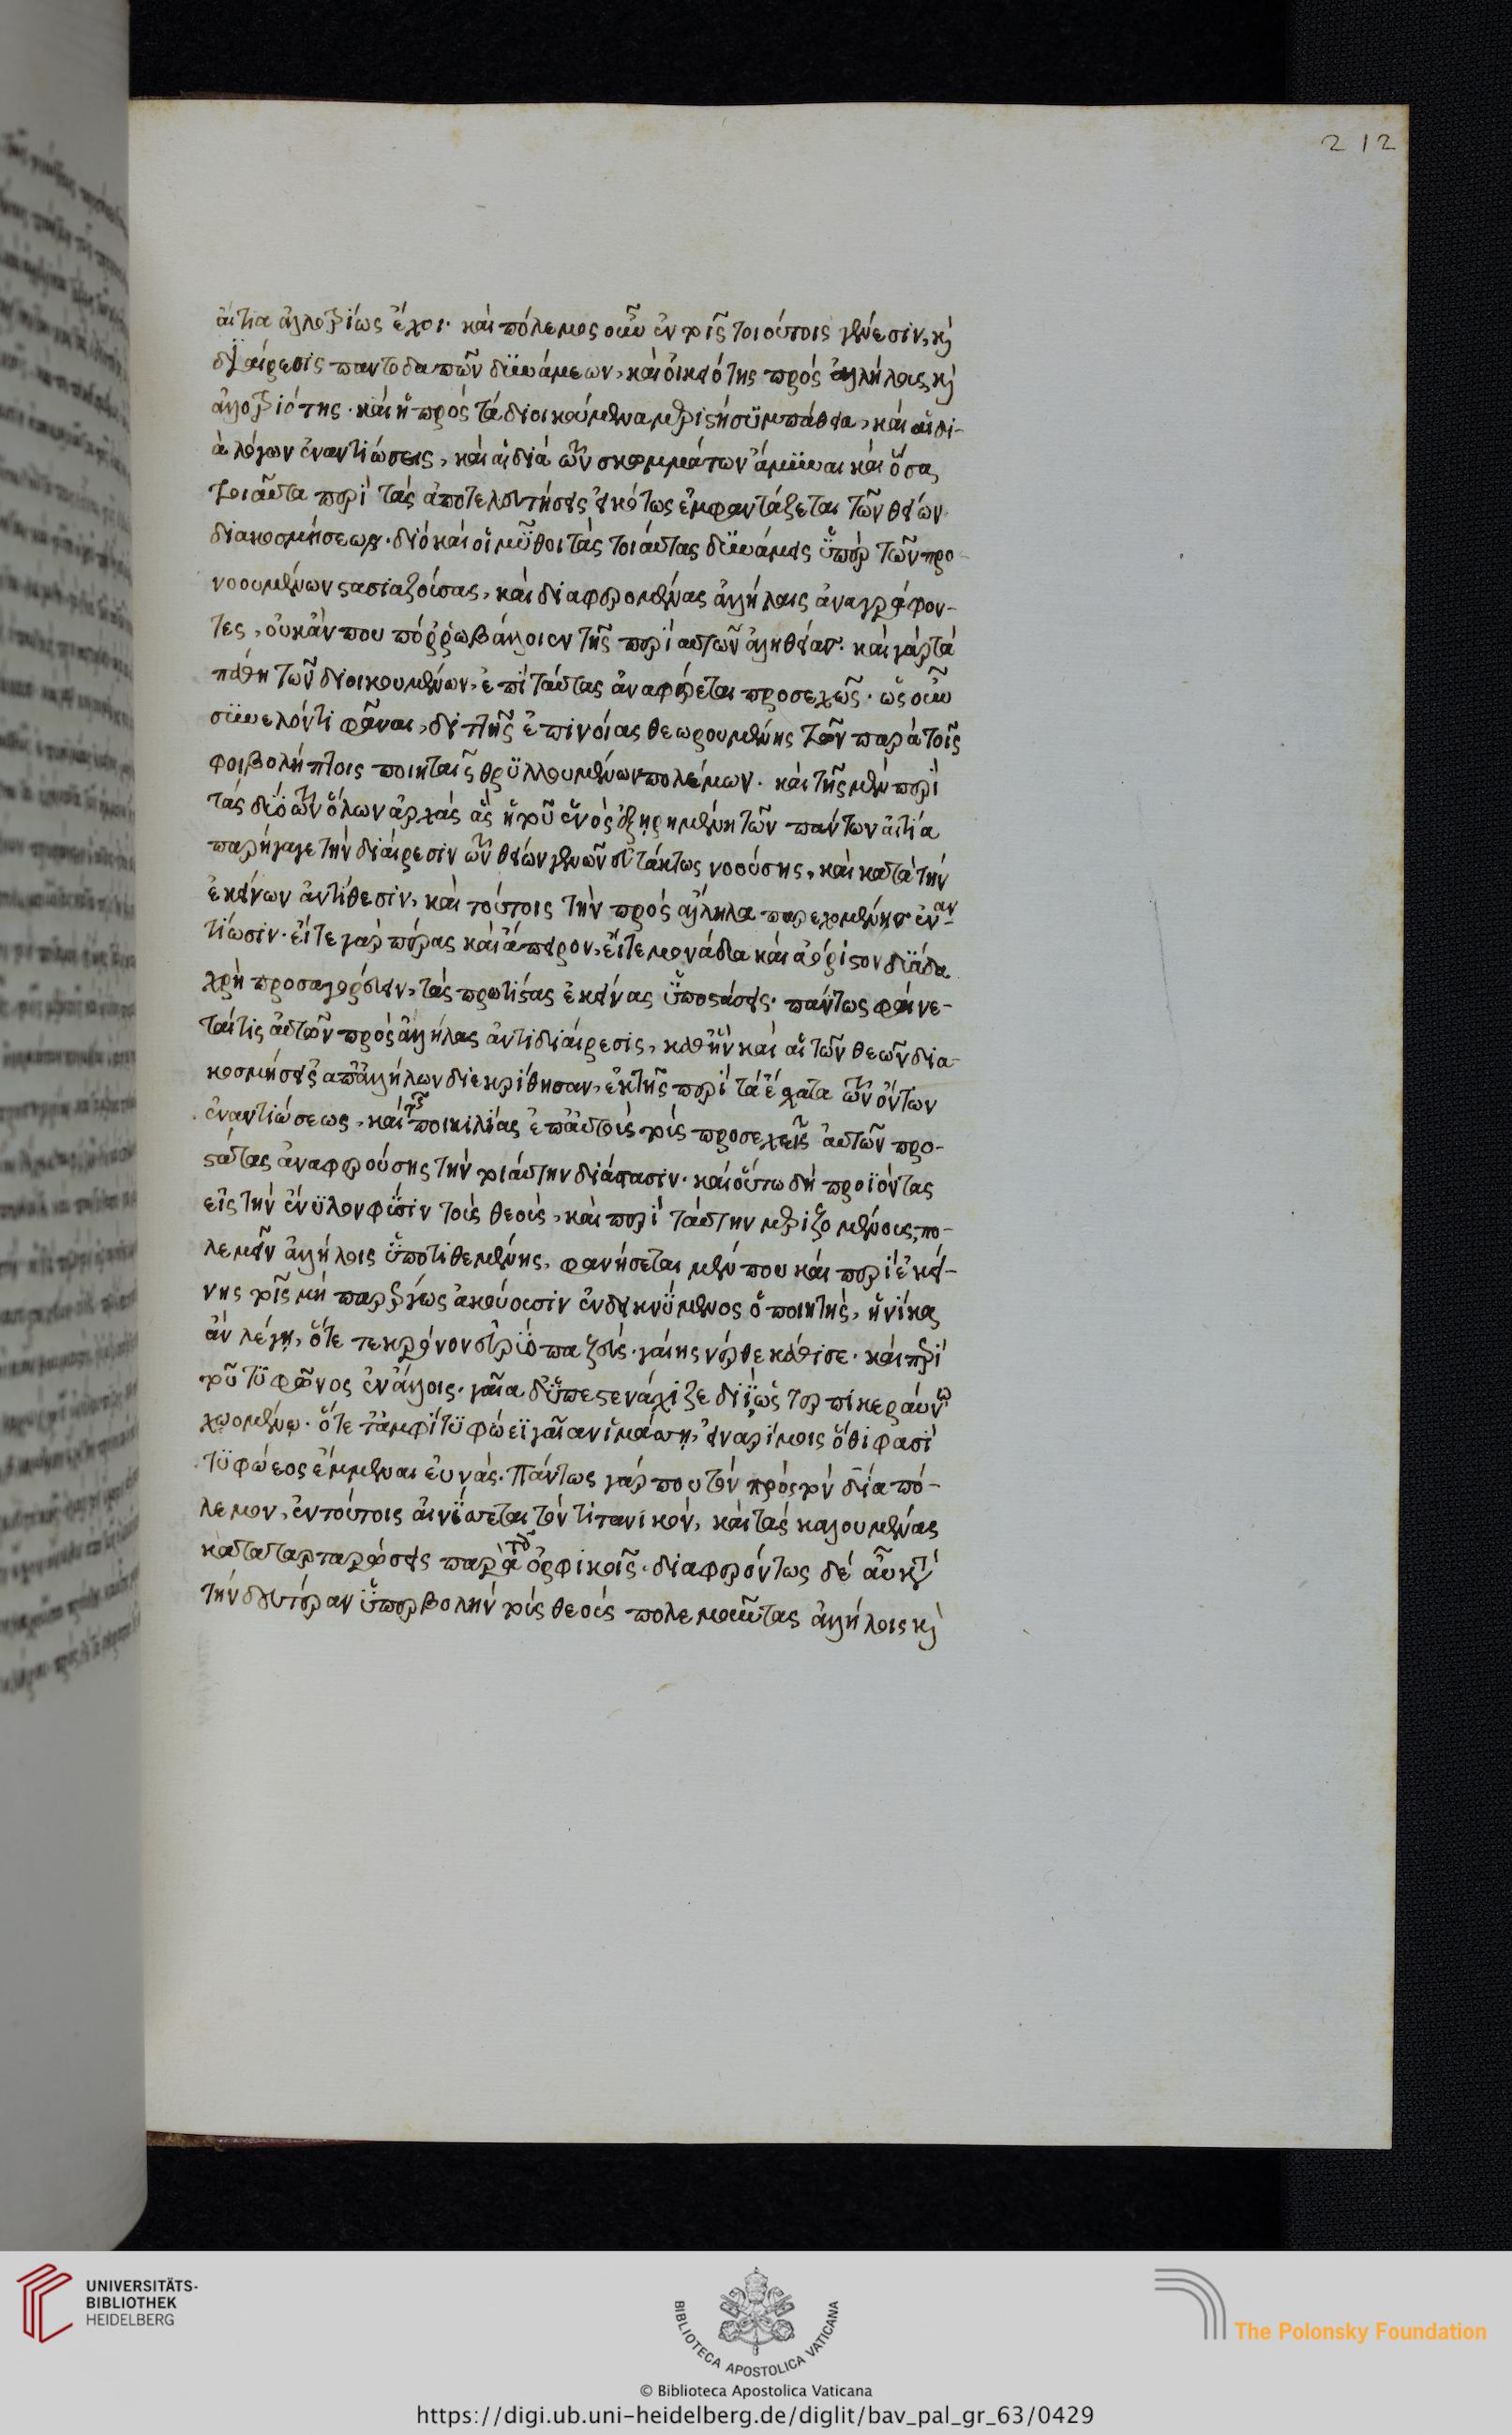 212
αἰτία ἀλλοτρίως ἔχοι. καὶ πόλεμος οὖν ἐν τοῖς τοιούτοις γένεσιν, καὶ
διαίρεσις παντοδαπῶν δυνάμεων, καὶ οἰκειότης πρὸς ἀλλήλας καὶ
ἀλλοτριότης. καὶ ἡ πρὸς τὰ διοικούμενα μεριστὴ συμπάθεια, καὶ αἱ δι-
ὰ λόγων ἐναντιώσεις, καὶ αἱ διὰ τῶν σκομμάτων ἄμυναι καὶ ὅσα
τοιαῦτα περὶ τὰς ἀποτελευτήσεις εἰκότως ἐμφαντάζεται τῶν θείων
διακοσμήσεων. διὸ καὶ οἱ μῦθοι τὰς τοιαύτας δυνάμεις ὑπὲρ τῶν προ-
νοουμένων στασιαζούσας, καὶ διαφερομένας ἀλλήλαις ἀναγράφον-
τες, οὐκ ἄν που πόρρω βάλλοιεν τῆς περὶ αὐτῶν ἀληθείας. καὶ γὰρ τὰ
πάθη τῶν διοικουμένων, ἐπὶ ταύτας ἀναφέρεται προσεχῶς. ὡς οὖν
συνελόντι φᾶναι, διττῆς ἐπινοίας θεωρουμένης τῶν παρὰ τοῖς
φοιβολήπτοις ποιηταῖς θρυλλουμένων πολέμων. καὶ τῆς μὲν περὶ
τὰς δύο τῶν ὅλων ἀρχὰς ἃς ἡ τοῦ ἑνὸς ἐξῃρημένη τῶν πάντων αἰτία
παρήγαγε τὴν διαίρεσιν τῶν θείων γενῶν εὐτάκτως νοούσης, καὶ κατὰ τὴν
ἐκείνων ἀντίθεσιν, καὶ τούτοις τὴν πρὸς ἄλληλα παρεχομένης ἐναν-
τίωσιν. εἴτε γὰρ πέρας καὶ ἄπειρον, εἴτε μονάδα καὶ ἀόριστον δυάδα
χρὴ προσαγορεύειν, τὰς πρωτίστας ἐκείνας ὑποστάσεις. πάντως φαίνε-
ταί τις αὐτῶν πρὸς ἀλλήλας ἀντιδιαίρεσις, καθ' ἣν καὶ αἱ τῶν θεῶν δια-
κοσμήσεις ἀπ' ἀλλήλων διεκρίθησαν, ἐκ τῆς περὶ τὰ ἔσχατα τῶν ὄντων
ἐναντιώσεως, καὶ τῆς ποικιλίας ἐπ' αὐτοὺς τοὺς προσεχεῖς αὐτῶν προ-
στάτας ἀναφερούσης τὴν τοιαύτην διάστασιν. καὶ οὕτω δὴ προϊόντας
εἰς τὴν ἔνυλον φύσιν τοὺς θεοὺς, καὶ περὶ ταύτην μεριζομένους, πο-
λεμεῖν ἀλλήλοις ὑποτιθεμένης, φανήσεται μέν που καὶ περὶ ἐκεί-
νης τοῖς μὴ παρέργως ἀκούουσιν ἐνδεικνύμενος ὁ ποιητὴς, ἡνίκα
ἂν λέγῃ, ὅτε τε κρόνον εὐρύοπα ζεὺς. γαίης νέρθε καθῖσε. καὶ περὶ
τοῦ τυφῶνος ἐν ἄλλοις. γαῖα δ' ὑπεστενάχιζε διὶ ὡς τερπικεραύνῳ
χωομένῳ. ὅτε τ' ἀμφὶ τυφωέϊ γαῖαν ἱμάσσῃ, εἰν ἀρίμοις ὅθι φασὶ
τυφωέος ἔμμεναι εὐνάς. Πάντως γάρ που τὸν πρὸς τὸν δία πό-
λεμον, ἐν τούτοις αἰνίσσεται τὸν τιτανικὸν, καὶ τὰς καλουμένας
καταταρταρώσεις παρὰ τοῖς ὀρφικοῖς. διαφερόντως δὲ αὖ κατὰ
τὴν δευτέραν ὑπερβολὴν τοὺς θεοὺς πολεμοῦντας ἀλλήλοις καὶ
UNIVERSITÄTS-
BIBLIOTHEK
HEIDELBERG
BIBLIOTECA APOSTOLICA VATICANA
The Polonsky Foundation
© Biblioteca Apostolica Vaticana
https://digi.ub.uni-heidelberg.de/diglit/bav_pal_gr_63/0429